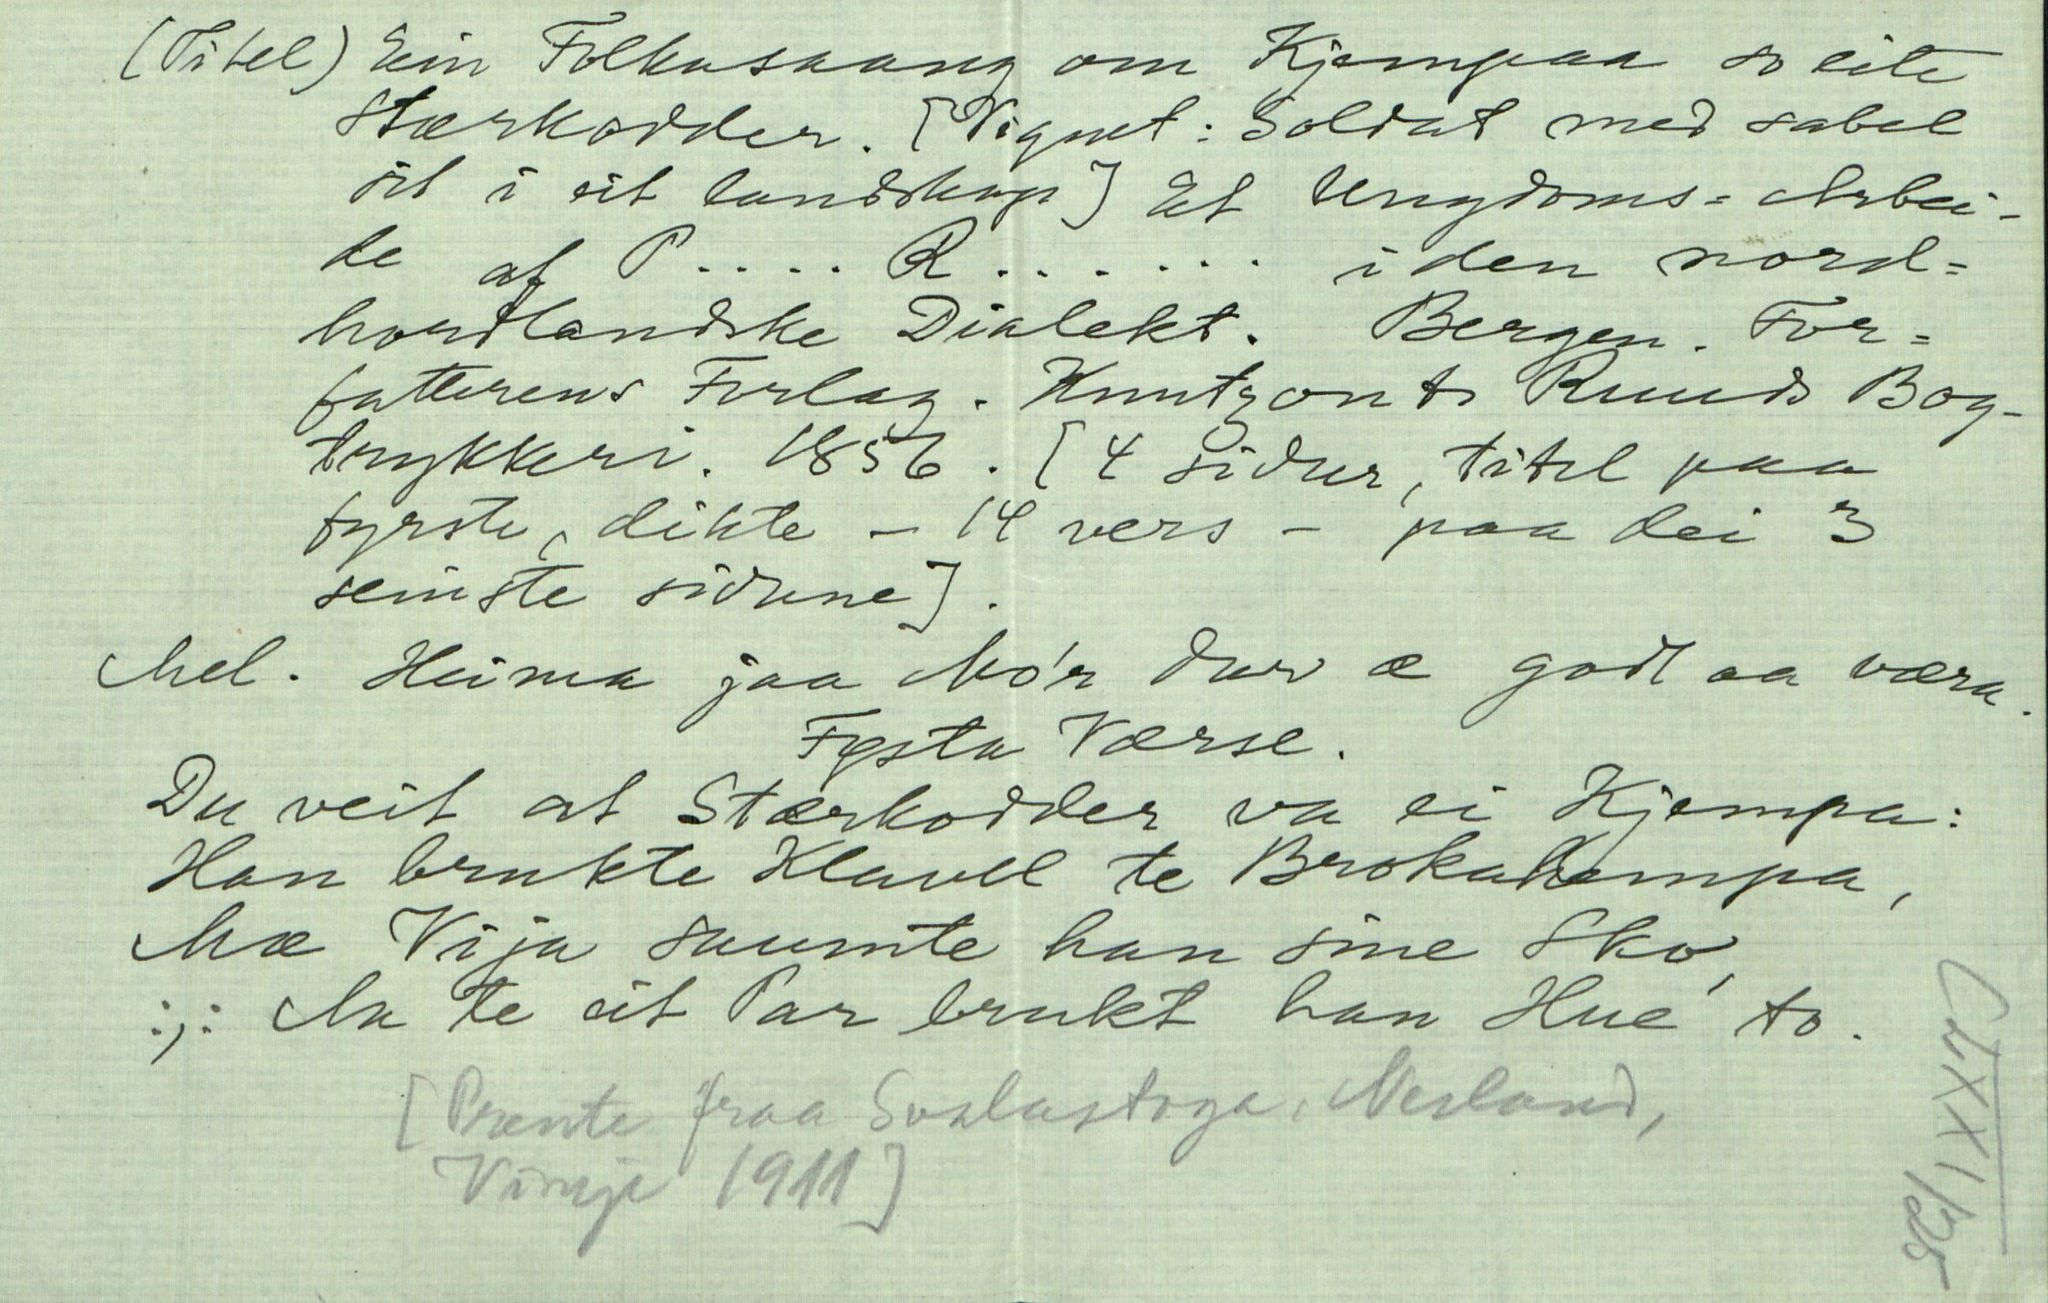 (Titel) Ein Folkasaang om Kjempaa so eite
Stærkodder. [Vignet: Soldat med sabel
sit i eit landskap] Et Ungdoms=Arbei-
de af P.... R....... i den nord=
hordlandske Dialekt. Bergen. For=
fatterens Forlag. Knutzon & Ruuds Bog-
trykkeri. 1856. [4 sidur, titel paa
fyrste, dikte - 14 vers - paa dei 3
seinste sidune].
Mel. Heima jaa Mo'r dær æ godt aa væra.
Fysta Værse.
Du veit at Stærkodder va ei Kjempa:
Han brukte Klavel te Brokahempa,
Mæ Vija saumte han sine Sko,
:,: Aa te eit Par brukt han Hue' to.
[Prente fraa Soslastoga, Nesland,
Vinje 1911]
CLXXI/25